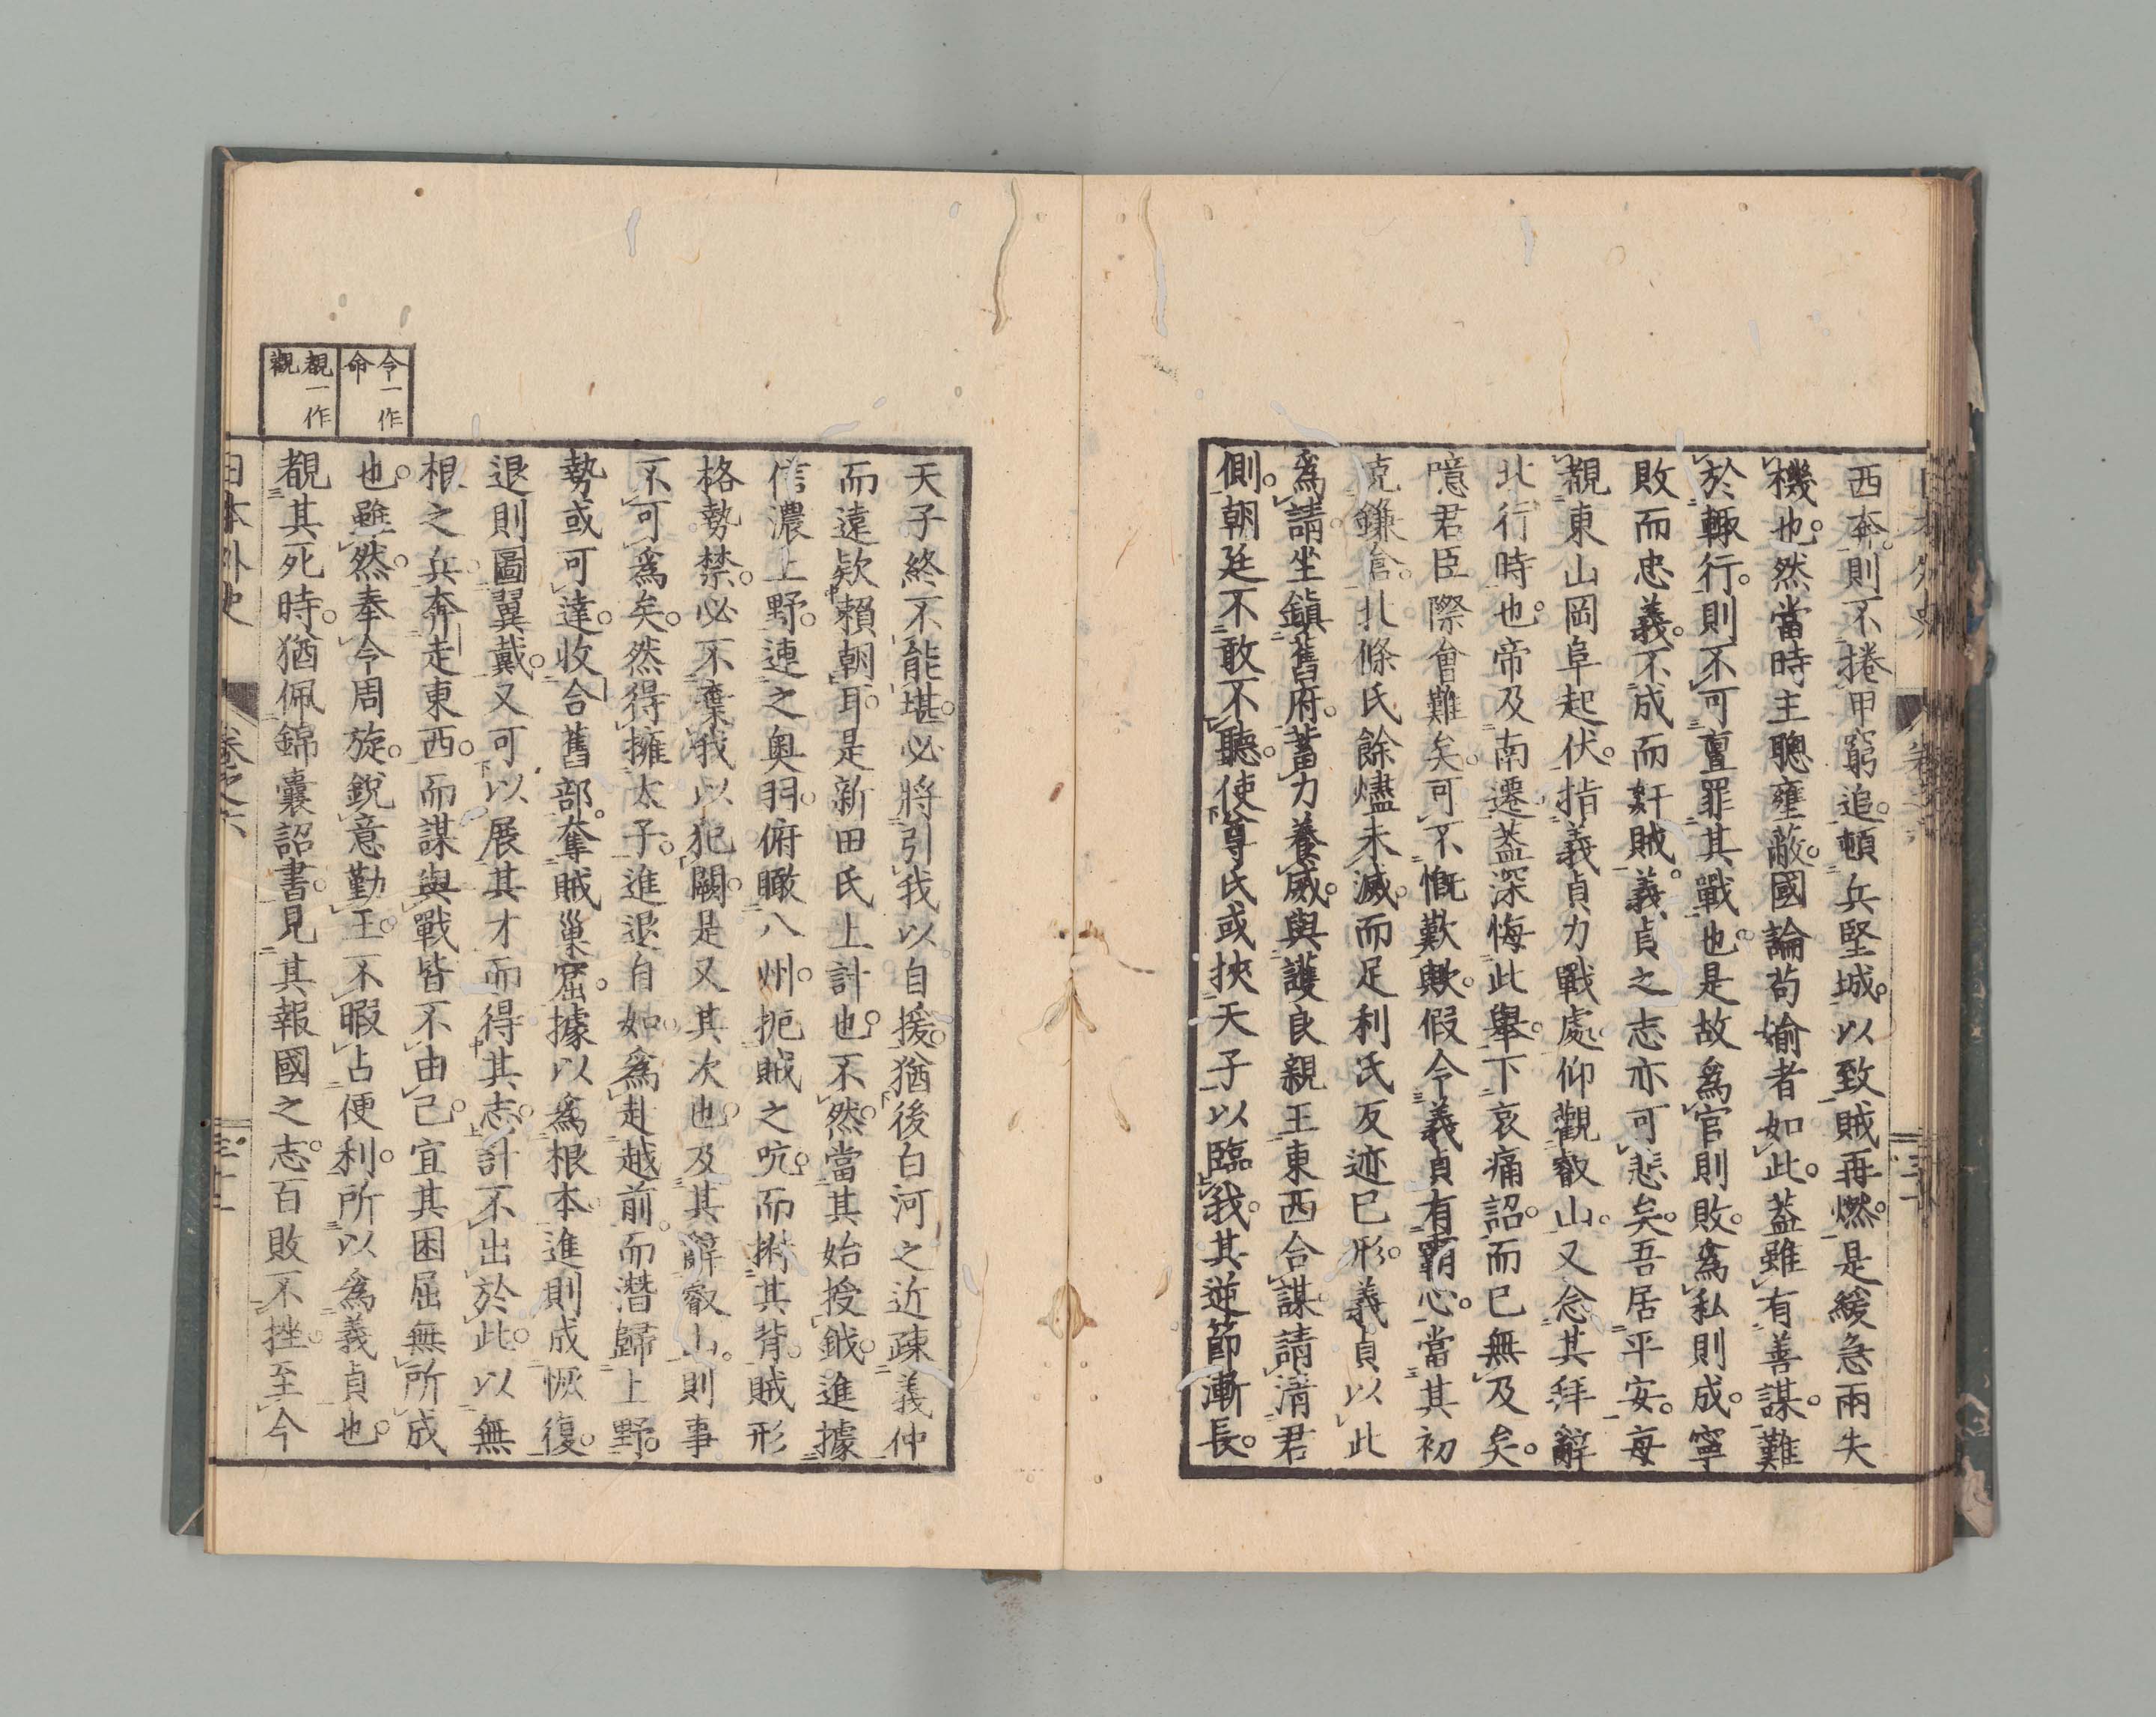 西奔。則不捲甲窮追。頓兵堅城。以致賊再燃。是緩急兩失
機也。然當時主聰壅蔽。國論苟媮者如此。蓋雖有善謀。難
於輙行。則不可亶罪其戰也。是故為官則敗。為私則成。寧
敗而忠義。不成而奸賊。義貞之志亦可悲矣。吾居平安。每
覩東山岡阜起伏。指義貞力戰處。仰觀叡山。又念其拜辭
北行時也。帝及南遷。蓋深悔此舉。下哀痛詔。而已無及矣。
噫君臣際會難矣。可不慨歎歟。假令義貞有霸心。當其初
克鎌倉。北條氏餘燼未滅。而足利氏反迹已形。義貞以此
為請。坐鎮舊府。蓄力養威。與護良親王東西合謀。請清君
側。朝廷不敢不聽。使尊氏或挾天子以臨我。其逆節漸長。
天子終不能堪。必將引我以自援。猶後白河之近疎義仲
而遠欵賴朝耳。是新田氏上計也。不然。當其始授鉞。進據
信濃上野。連之奥羽。俯瞰八州。扼賊之吭。而拊其背。賊形
格勢禁。必不棄我以犯闕。是又其次也。及其辭叡山。則事
不可為矣。然得擁太子。進退自如。為赴越前。而潛歸上野。
勢或可達。收合舊部。奪賊巢窟。據以為根本。進則成恢復。
退則圖翼戴。又可以展其才而得其志。計不出於此。以無
根之兵。奔走東西。而謀與戰皆不由己。宜其困屈無所成
也。雖然。奉令周旋。銳意勤王。不暇占便利。所以為義貞也。
覩其死時。猶佩錦囊詔書。見其報國之志。百敗不挫。至今
令一作
命
覩一作
觀
日本外史
卷之六